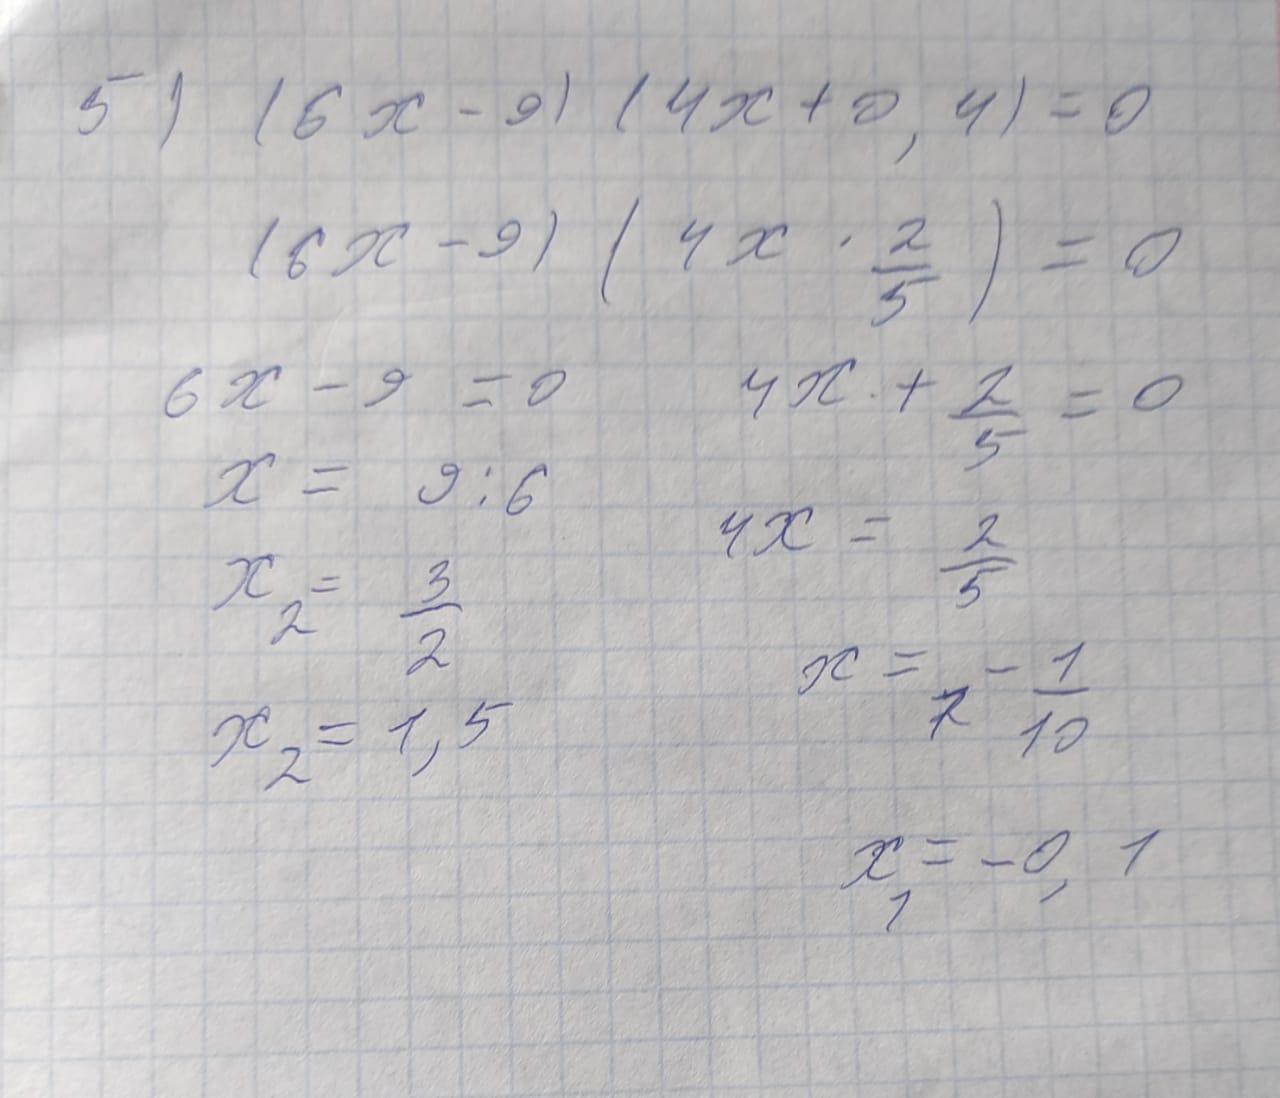 5) (6x - 9) (4x + 0,4) = 0
(6x - 9) (4x · 2/5) = 0
6x - 9 = 0
x = 9:6
x₂ = 3/2
x₂ = 1,5
4x · + 2/5 = 0
4x = 2/5
x = - 1/10
x₁ = -0,1